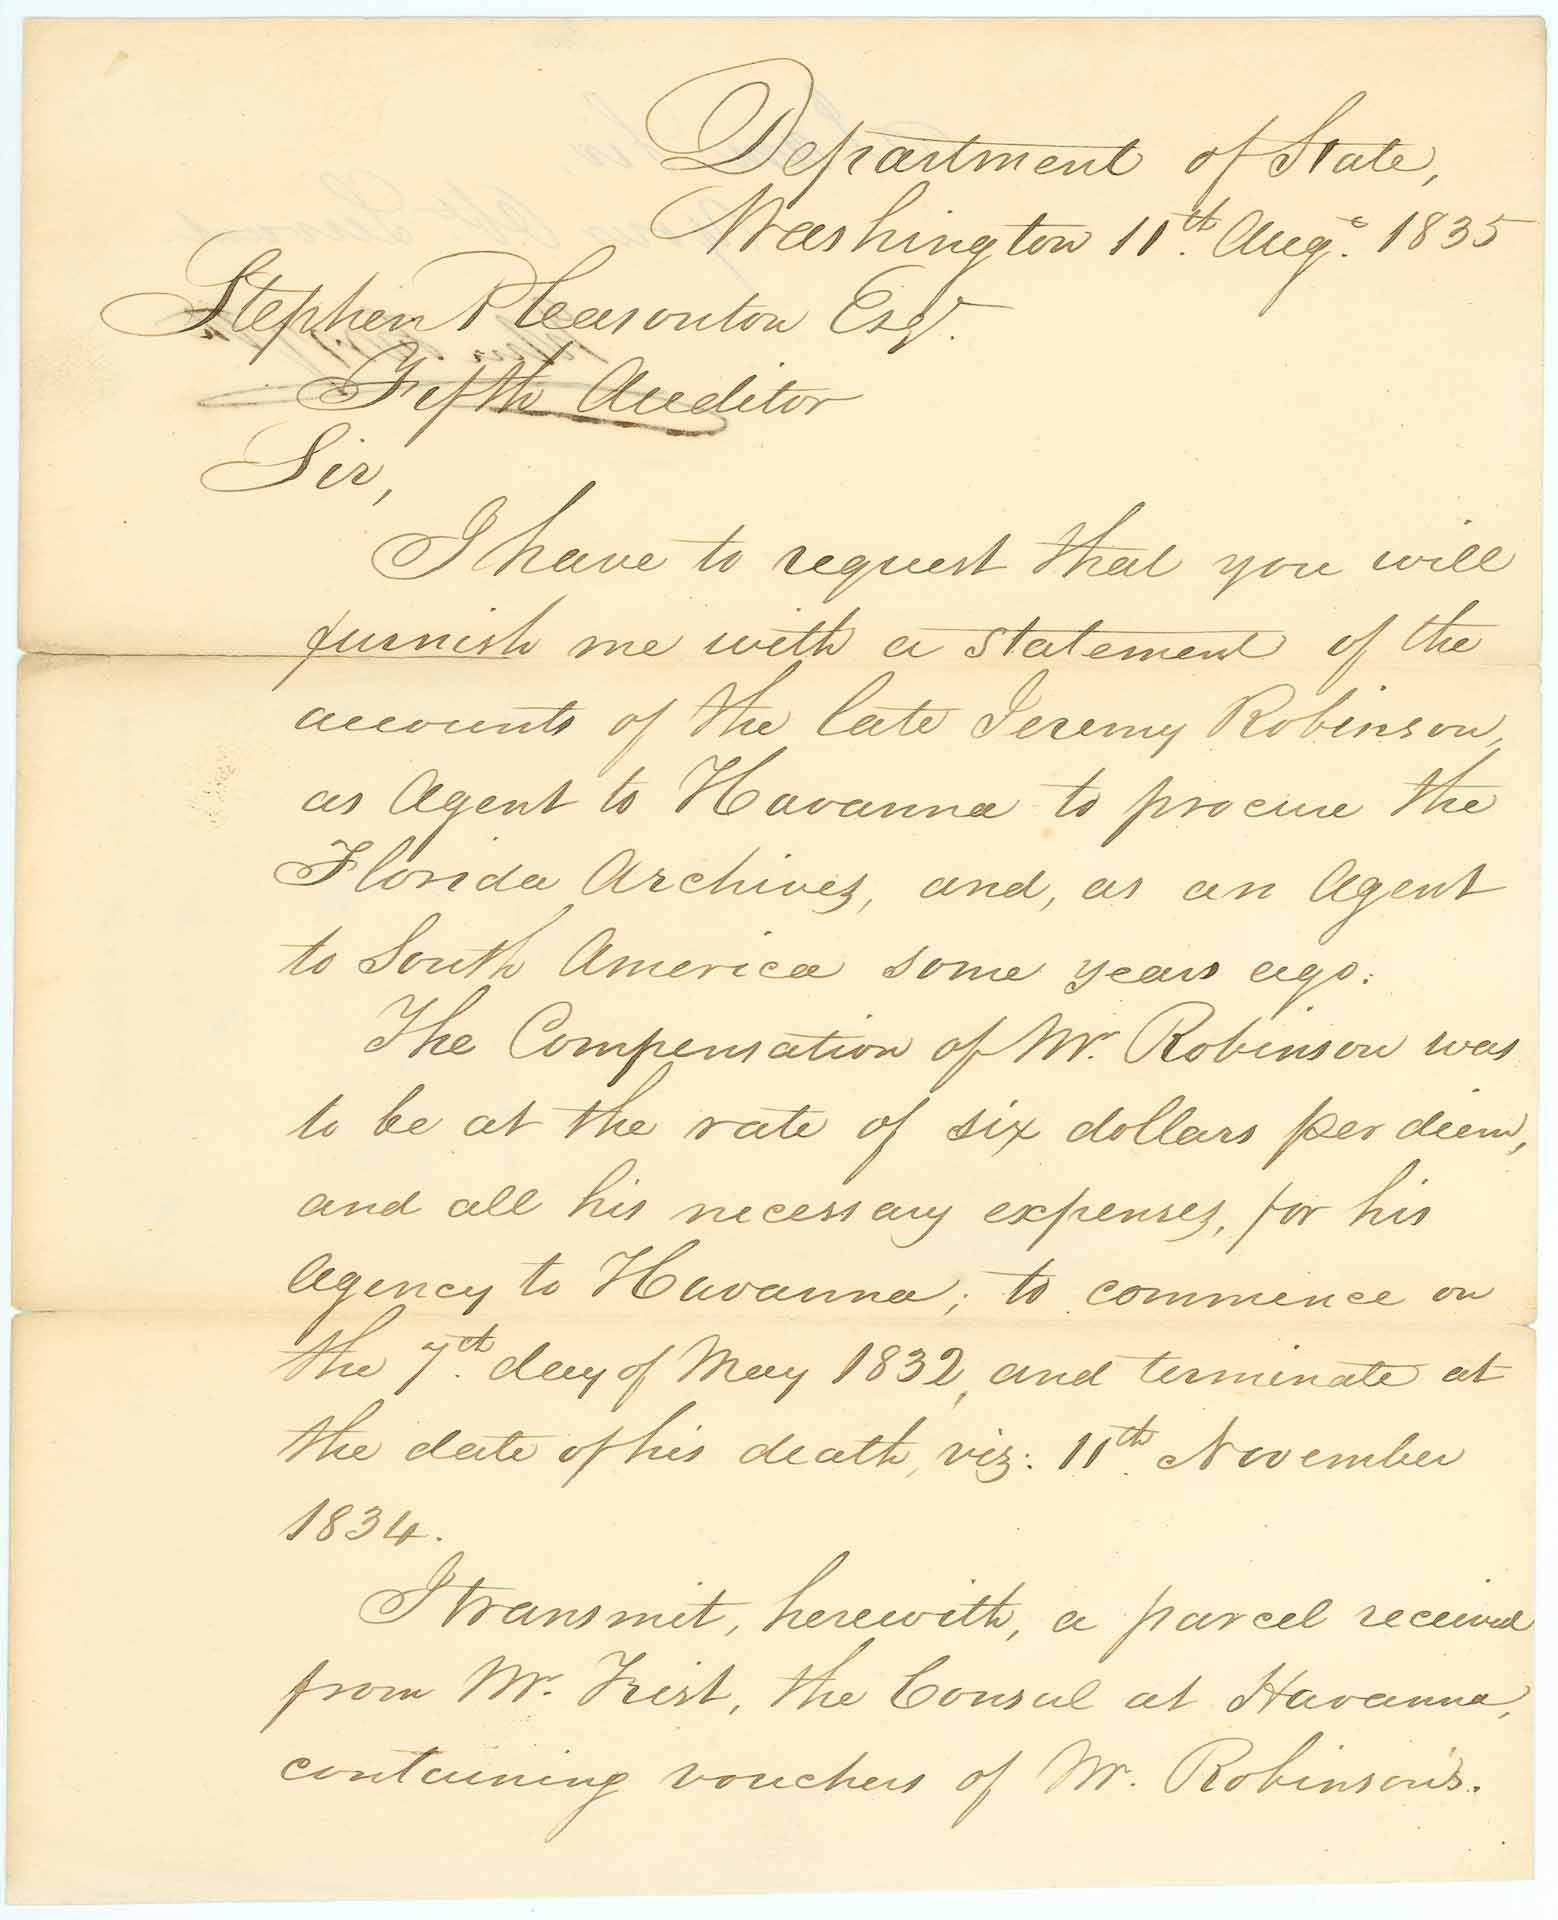 Department of State,
Washington 11th. Augt. 1835
Stephen Pleasonton Esqr.
Fifth Auditor
Sir,
I have to request that you will
furnish me with a statement of the
accounts of the late Jeremy Robinson,
as Agent to Havanna to procure the
Florida Archives, and, as an Agent
to South America some years ago.
The Compensation of Mr. Robinson was
to be at the rate of six dollars per diem,
and all his necessary expenses, for his
Agency to Havanna; to commence on
the 7th. day of May 1832, and terminate at
the date of his death, viz: 11th. November
1834.
I transmit, herewith, a parcel received
from Mr. Trist, the Consul at Havanna,
containing vouchers of Mr. Robinson's.